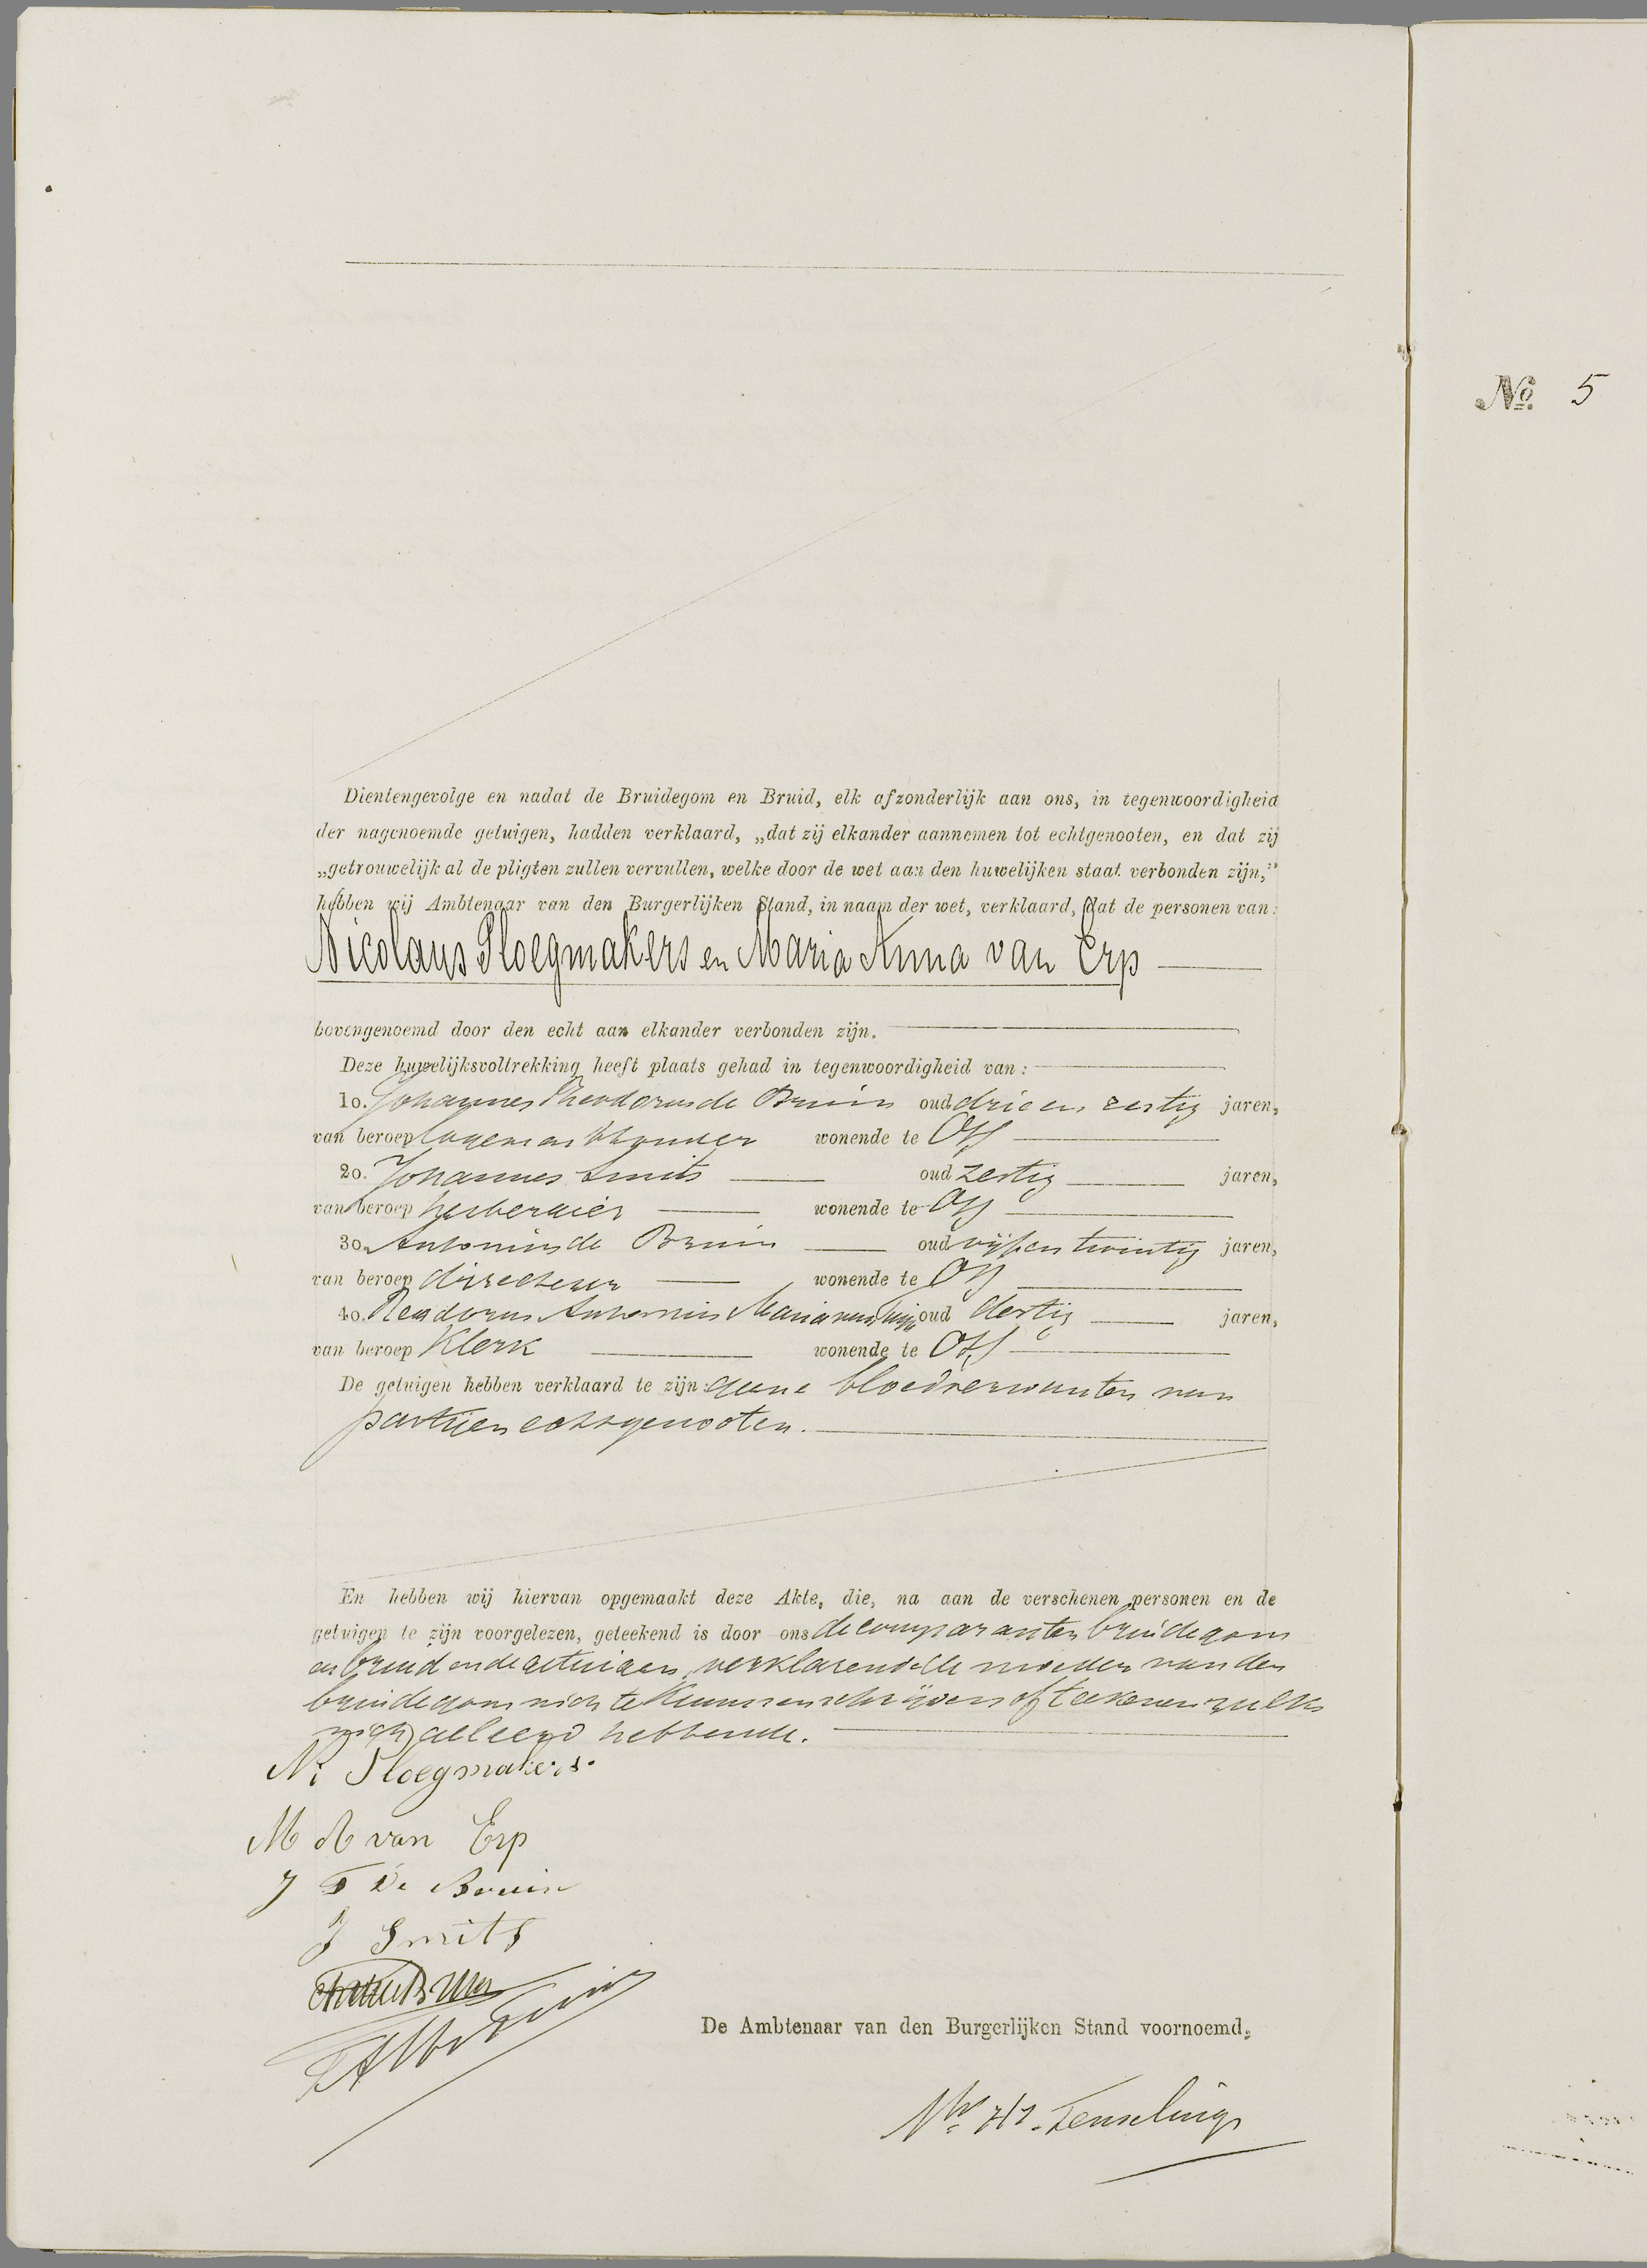 No. 5
Dientengevolge en nadat de Bruidegom en Bruid, elk afzonderlijk aan ons, in tegenwoordigheid
der nagenoemde getuigen, hadden verklaard, „dat zij elkander aannemen tot echtgenooten, en dat zij
„getrouwelijk al de pligten zullen vervullen, welke door de wet aan den huwelijken staat verbonden zijn,”
hebben wij Ambtenaar van den Burgerlijken Stand, in naam der wet, verklaard, dat de personen van:
Nicolaus Ploegmakers en Maria Anna van Erp
bovengenoemd door den echt aan elkander verbonden zijn.
Deze huwelijksvoltrekking heeft plaats gehad in tegenwoordigheid van:
1o. Johannes Theodorus de Bruin oud drie en zestig jaren,
van beroep logementhouder wonende te Oss
2o. Johannes Smits oud zestig jaren,
van beroep herbergier wonende te Oss
3o. Antonius de Bruin oud vijf en twintig jaren,
van beroep directeur wonende te Oss
4o. Theodorus Antonius Maria van oud dertig jaren,
van beroep Klerk wonende te Oss
De getuigen hebben verklaard te zijn: geene bloedverwanten van
partijen echtgenooten.
En hebben wij hiervan opgemaakt deze Akte, die, na aan de verschenen personen en de
getuigen te zijn voorgelezen, geteekend is door ons de comparanten bruidegom
en bruid en de getuigen, verklarende de moeder van den
bruidegom niet te kunnen schrijven of teekenen zulks
niet geleerd hebbende.
N: Ploegmakers.
M A van Erp
J T De Bruin
J Smits
De Ambtenaar van den Burgerlijken Stand voornoemd,